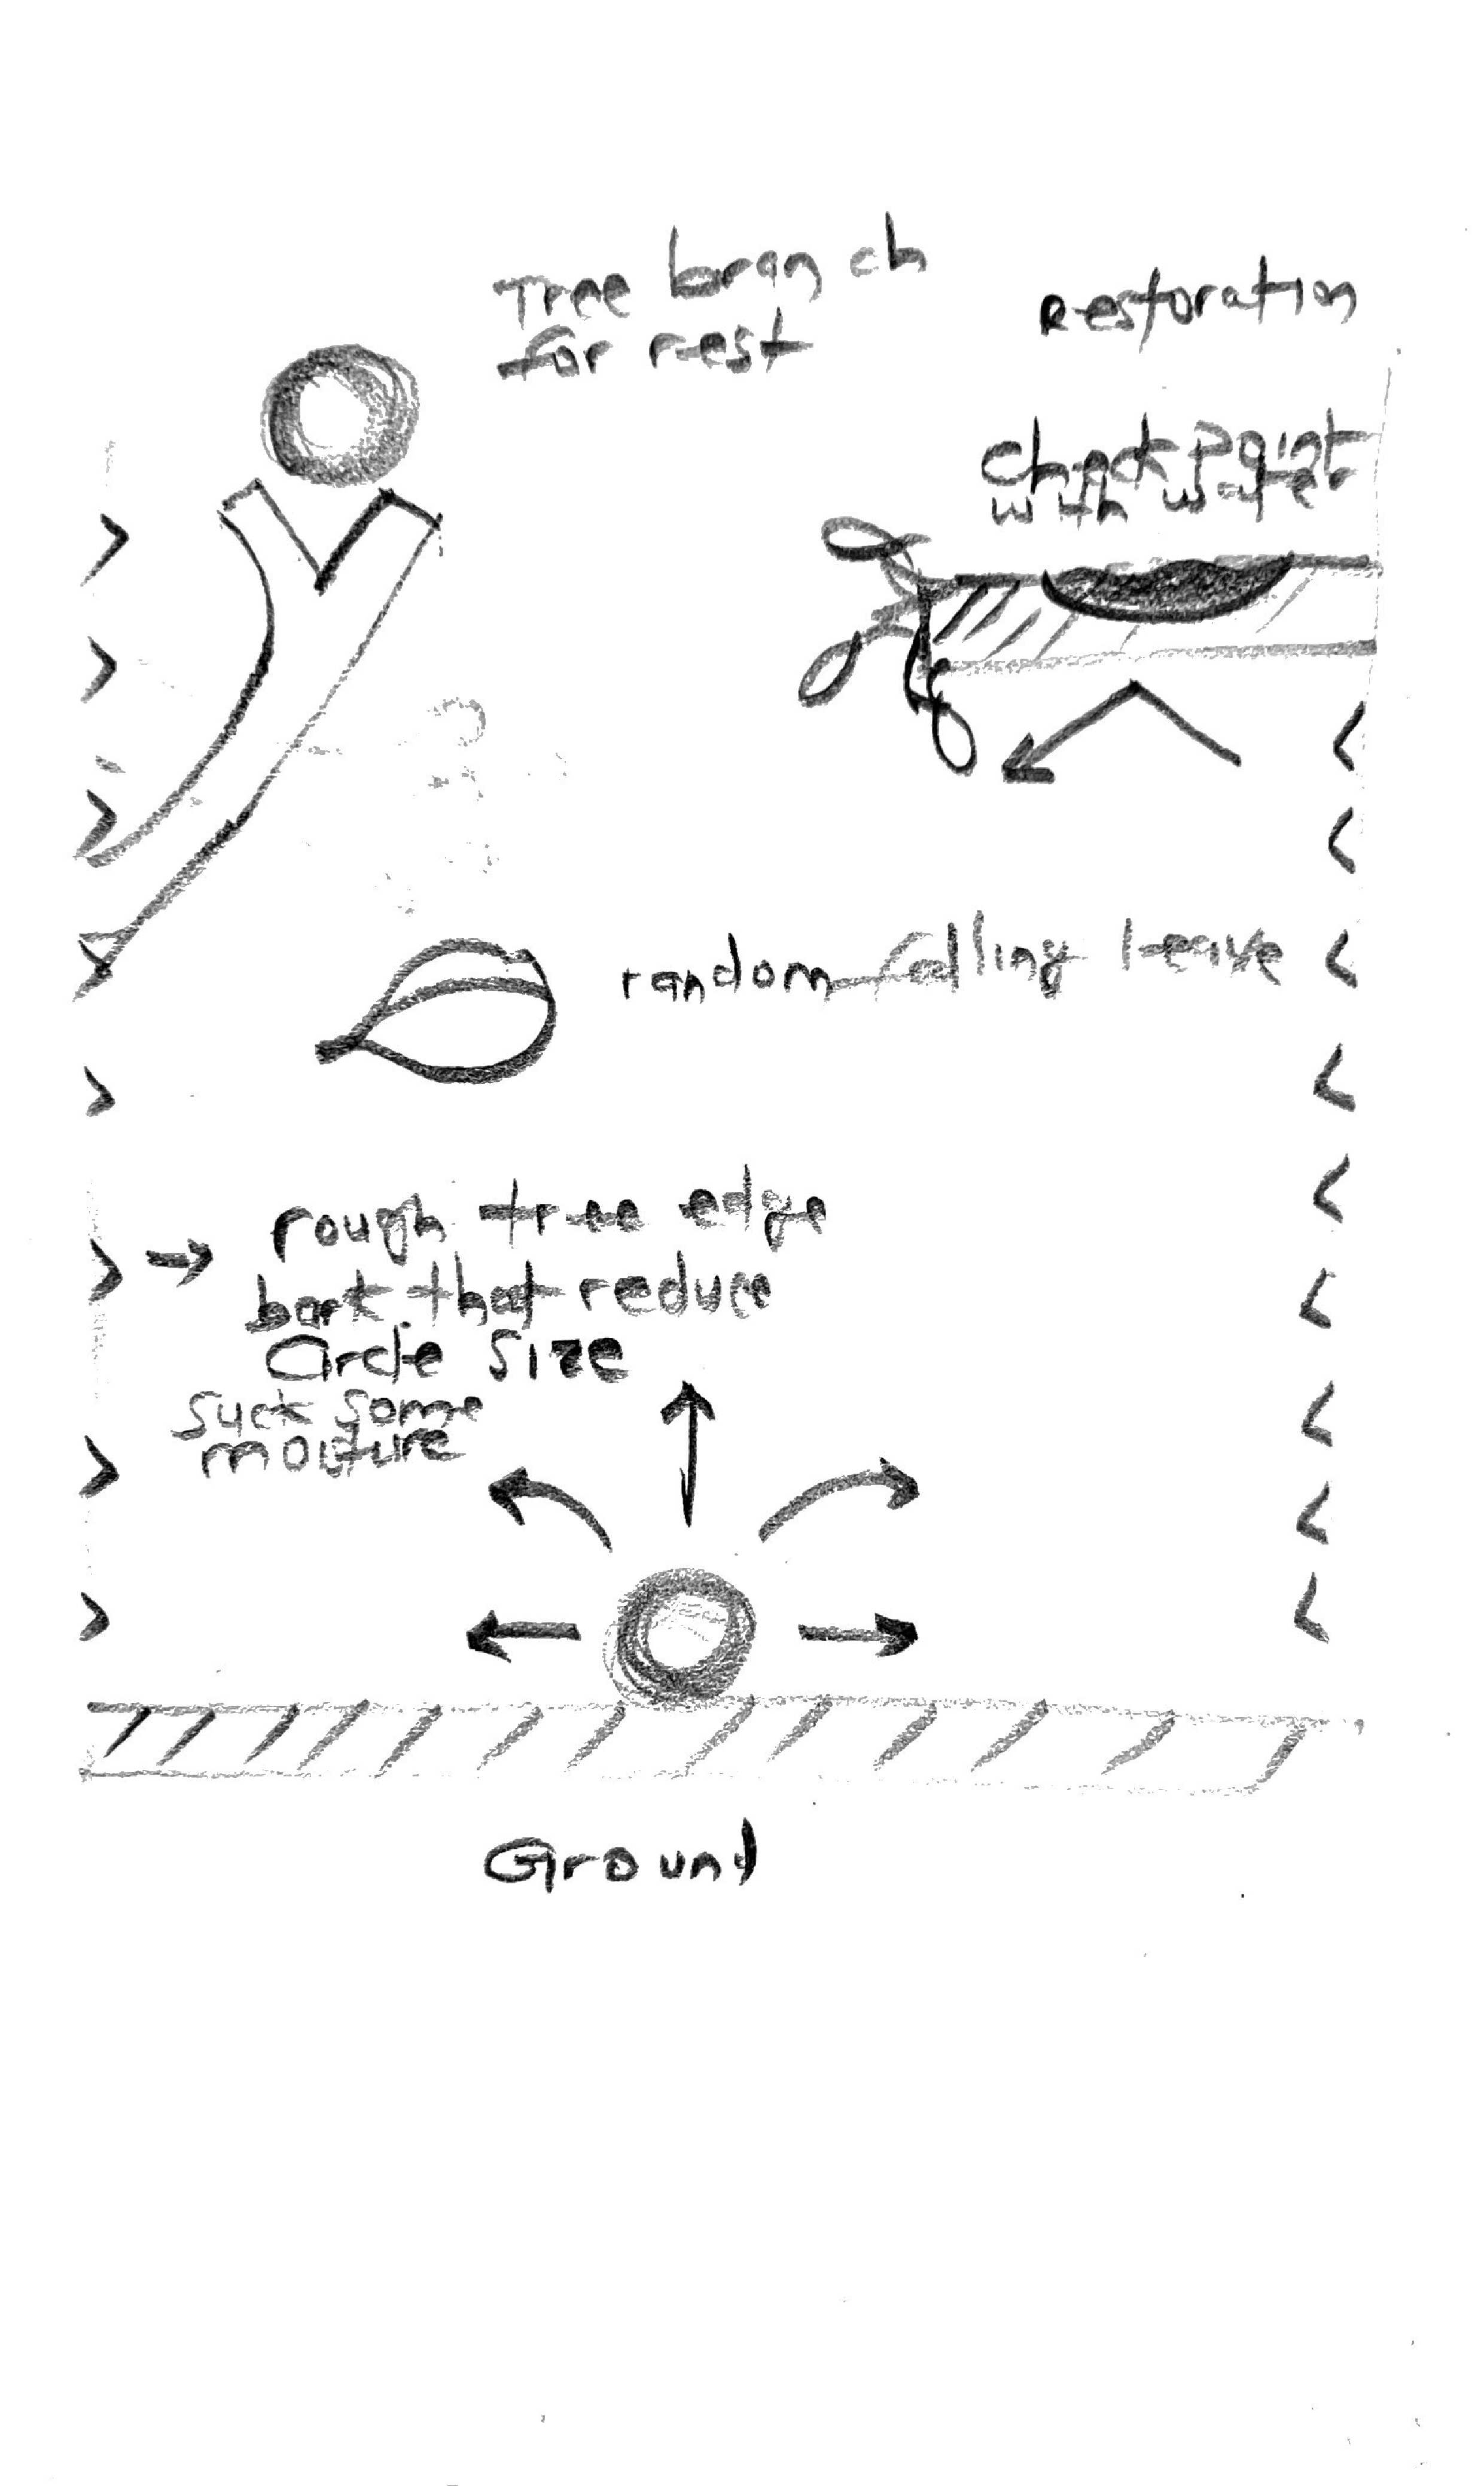 Tree branch
for rest
Restoration
check point
with water
random falling leave
rough tree edge
bark that reduce
Circle Size
Suck some
moisture
Ground